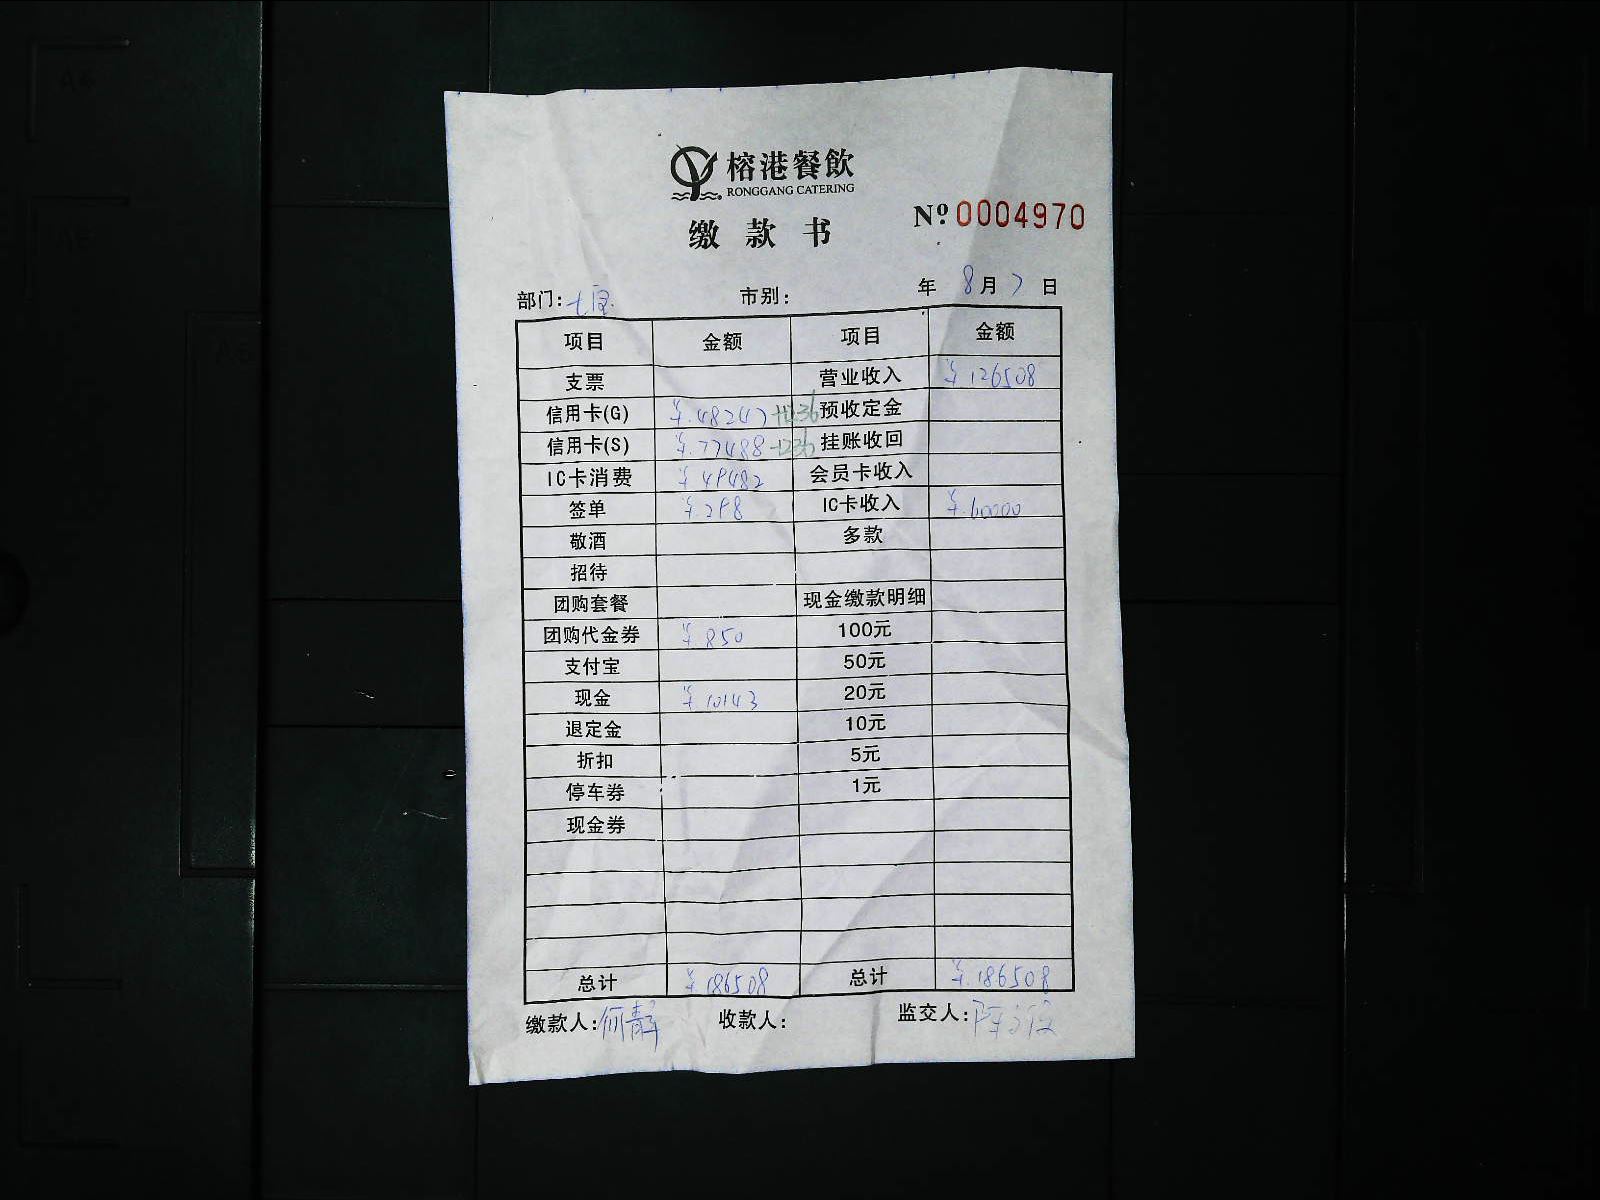 榕港餐飲
RONGGANG CATERING
缴款书
Nº 0004970
部门:七宝 市别: 年 8月7日
项目 金额 项目 金额
支票 营业收入 ¥126508
信用卡(G) ¥.48247 +1236 预收定金
信用卡(S) ¥.77488 -1236 挂账收回
IC卡消费 ¥49482 会员卡收入
签单 ¥.298 IC卡收入 ¥.60000
敬酒 多款
招待
团购套餐 现金缴款明细
团购代金券 ¥850 100元
支付宝 50元
现金 ¥.10143 20元
退定金 10元
折扣 5元
停车券 1元
现金券
总计 ¥.186508 总计 ¥.186508
缴款人:何静 收款人: 监交人: